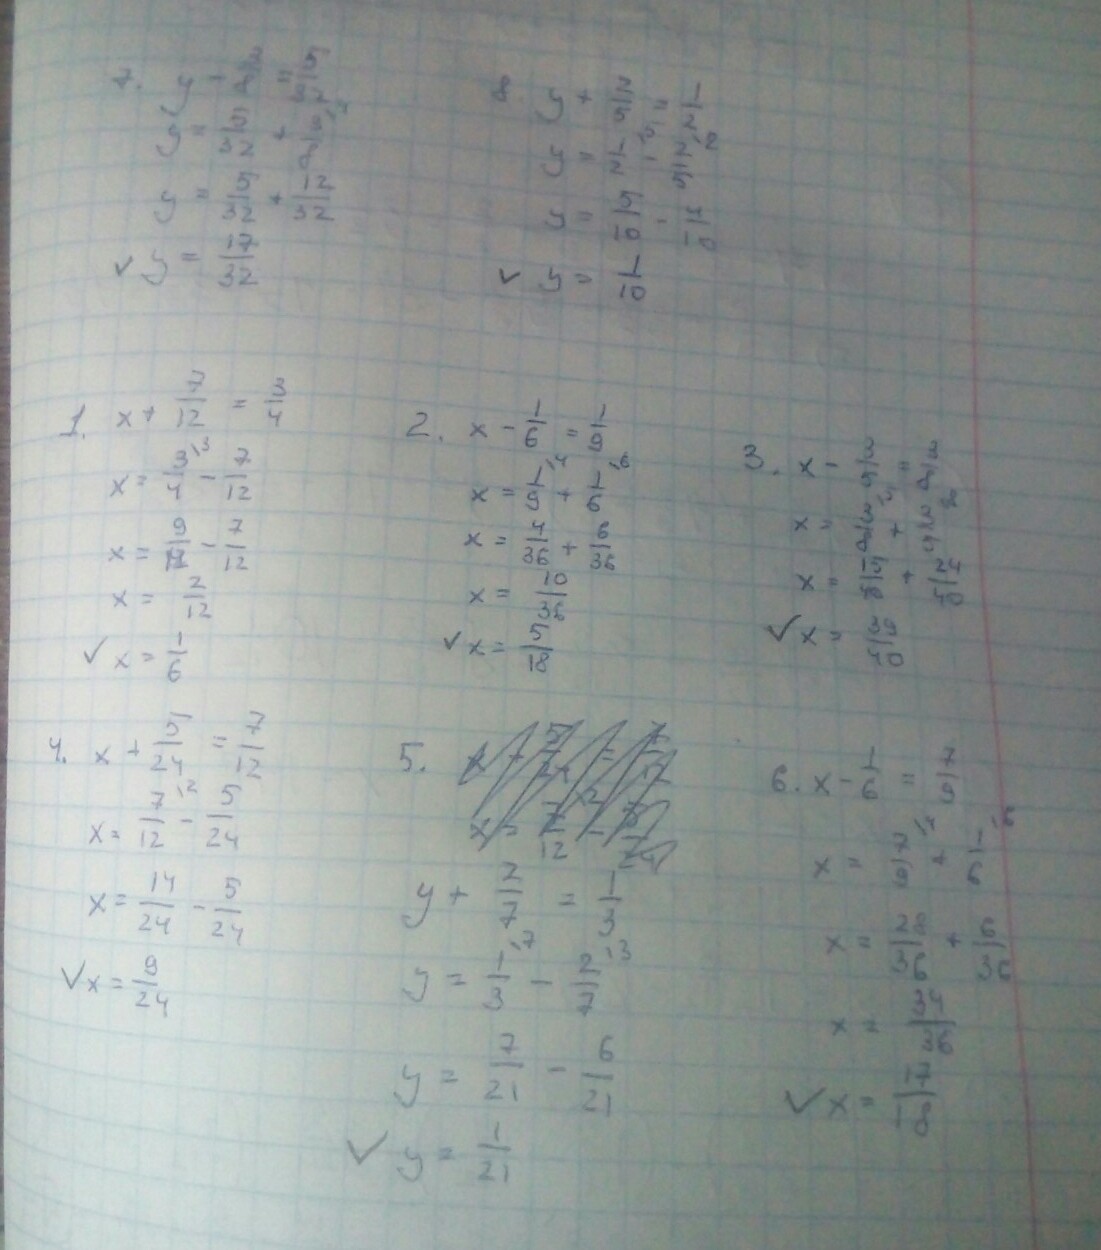 7. y - 3/8 = 5/32
y = 5/32 + 3/8
y = 5/32 + 12/32
✓ y = 17/32
8. y + 2/5 = 1/2
y = 1/2 - 2/5
y = 5/10 - 4/10
✓ y = 1/10
1. x + 7/12 = 3/4
x = 3/4 - 7/12
x = 9/12 - 7/12
x = 2/12
✓ x = 1/6
2. x - 1/6 = 1/9
x = 1/9 + 1/6
x = 4/36 + 6/36
x = 10/36
✓ x = 5/18
3. x - 3/5 = 3/8
x = 3/8 + 3/5
x = 15/40 + 24/40
✓ x = 39/40
4. x + 5/24 = 7/12
x = 7/12 - 5/24
x = 14/24 - 5/24
✓ x = 9/24
5.
y + 2/7 = 1/3
y = 1/3 - 2/7
y = 7/21 - 6/21
✓ y = 1/21
6. x - 1/6 = 7/9
x = 7/9 + 1/6
x = 28/36 + 6/36
x = 34/36
✓ x = 17/18